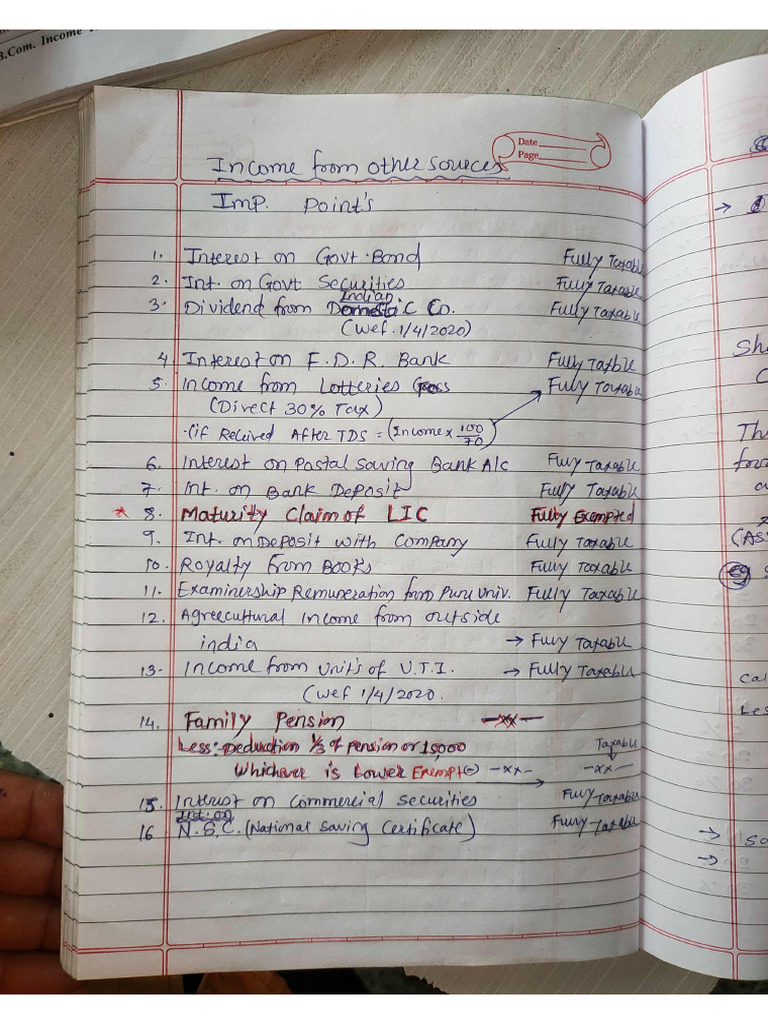 B.Com. Income
Date
Page
Income from other sources
Imp. Point's
1. Interest on Govt. Bond Fully Taxable
2. Int. on Govt Securities Fully Taxable
Indian
3. Dividend from Domestic Co. Fully Taxable
(Wef. 1/4/2020)
4. Interest on F.D.R. Bank Fully Taxble
5. Income from Lotteries Gross Fully Taxable
(Direct 30% Tax)
(if Received After TDS = (Income x 100/70)
6. Interest on Postal Saving Bank A/c Fully Taxable
7. Int. on Bank Deposit Fully Taxable
* 8. Maturity Claim of LIC Fully Exempted
9. Int. on Deposit with Company Fully Taxable
10. Royalty from Books Fully Taxable
11. Examinership Remuneration from Univ. Fully Taxable
12. Agreecultural income from outside
india → Fully Taxable
13. Income from Unit's of U.T.I. → Fully Taxable
(Wef 1/4/2020.
14. Family Pension —xx—
Less: Deduction 1/3 of pension or 15,000 Taxable
Whichever is Lower Exempt (-) —xx— —xx—
15. Interest on Commercial Securities Fully Taxable
Int. on
16 N.S.C. (National Saving Certificate) Fully Taxable
Sh
Th
for
(Ass
eg
cal
Les
So